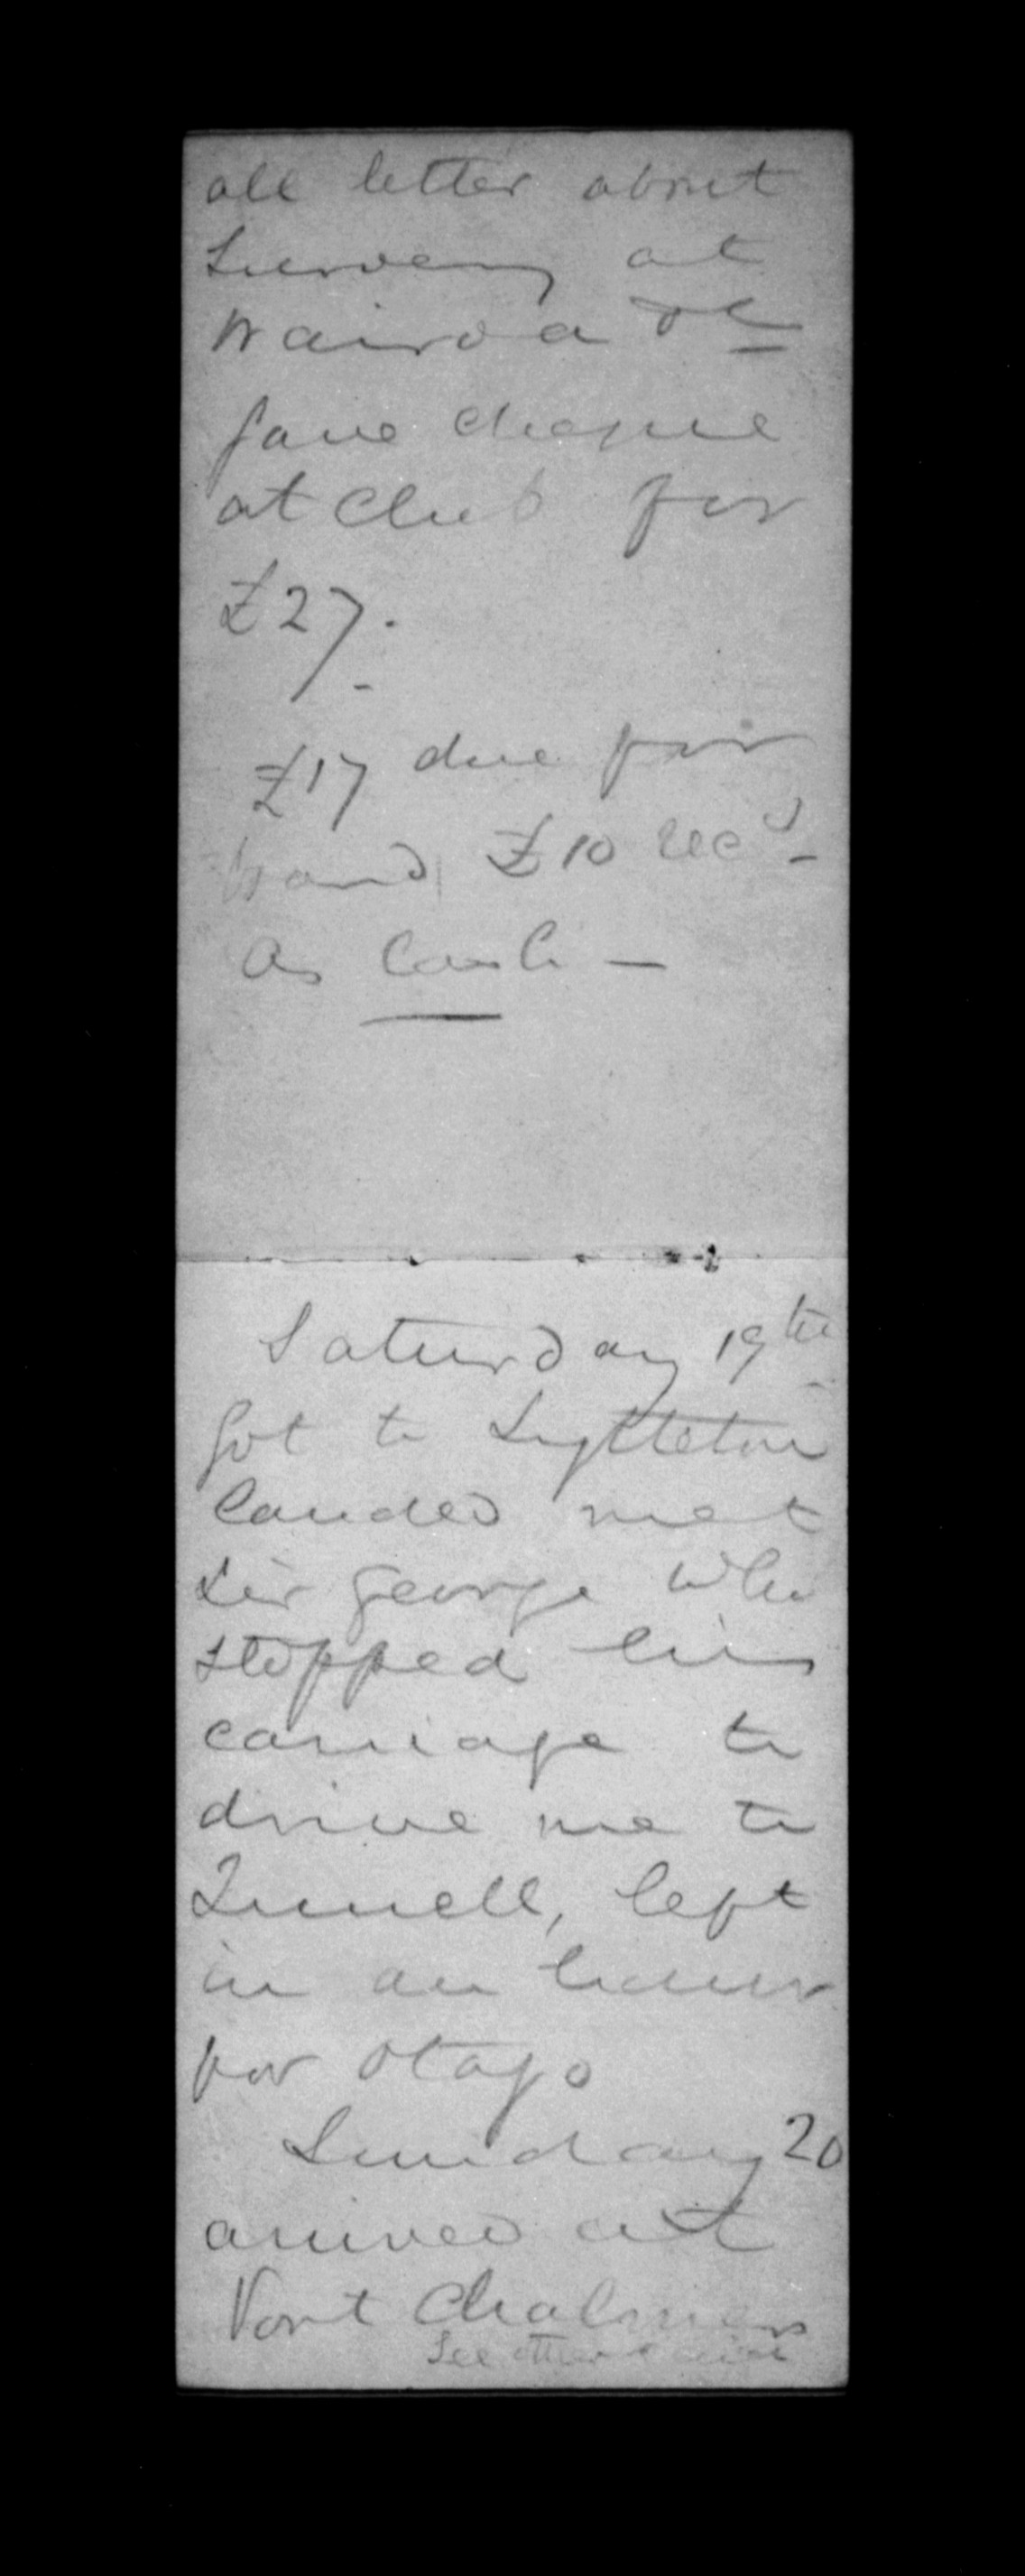 all letter about
Survey at
Wairoa &c
gave cheque
at Club for
£27.
£17 due for
board £10 recd
as Cash –
Saturday 19th
got to Lyttelton
landed met
Sir George who
stopped his
carriage to
drive me to
Tunnell, left
in an hour
for Otago
Sunday 20
arrived at
Port Chalmers
See other